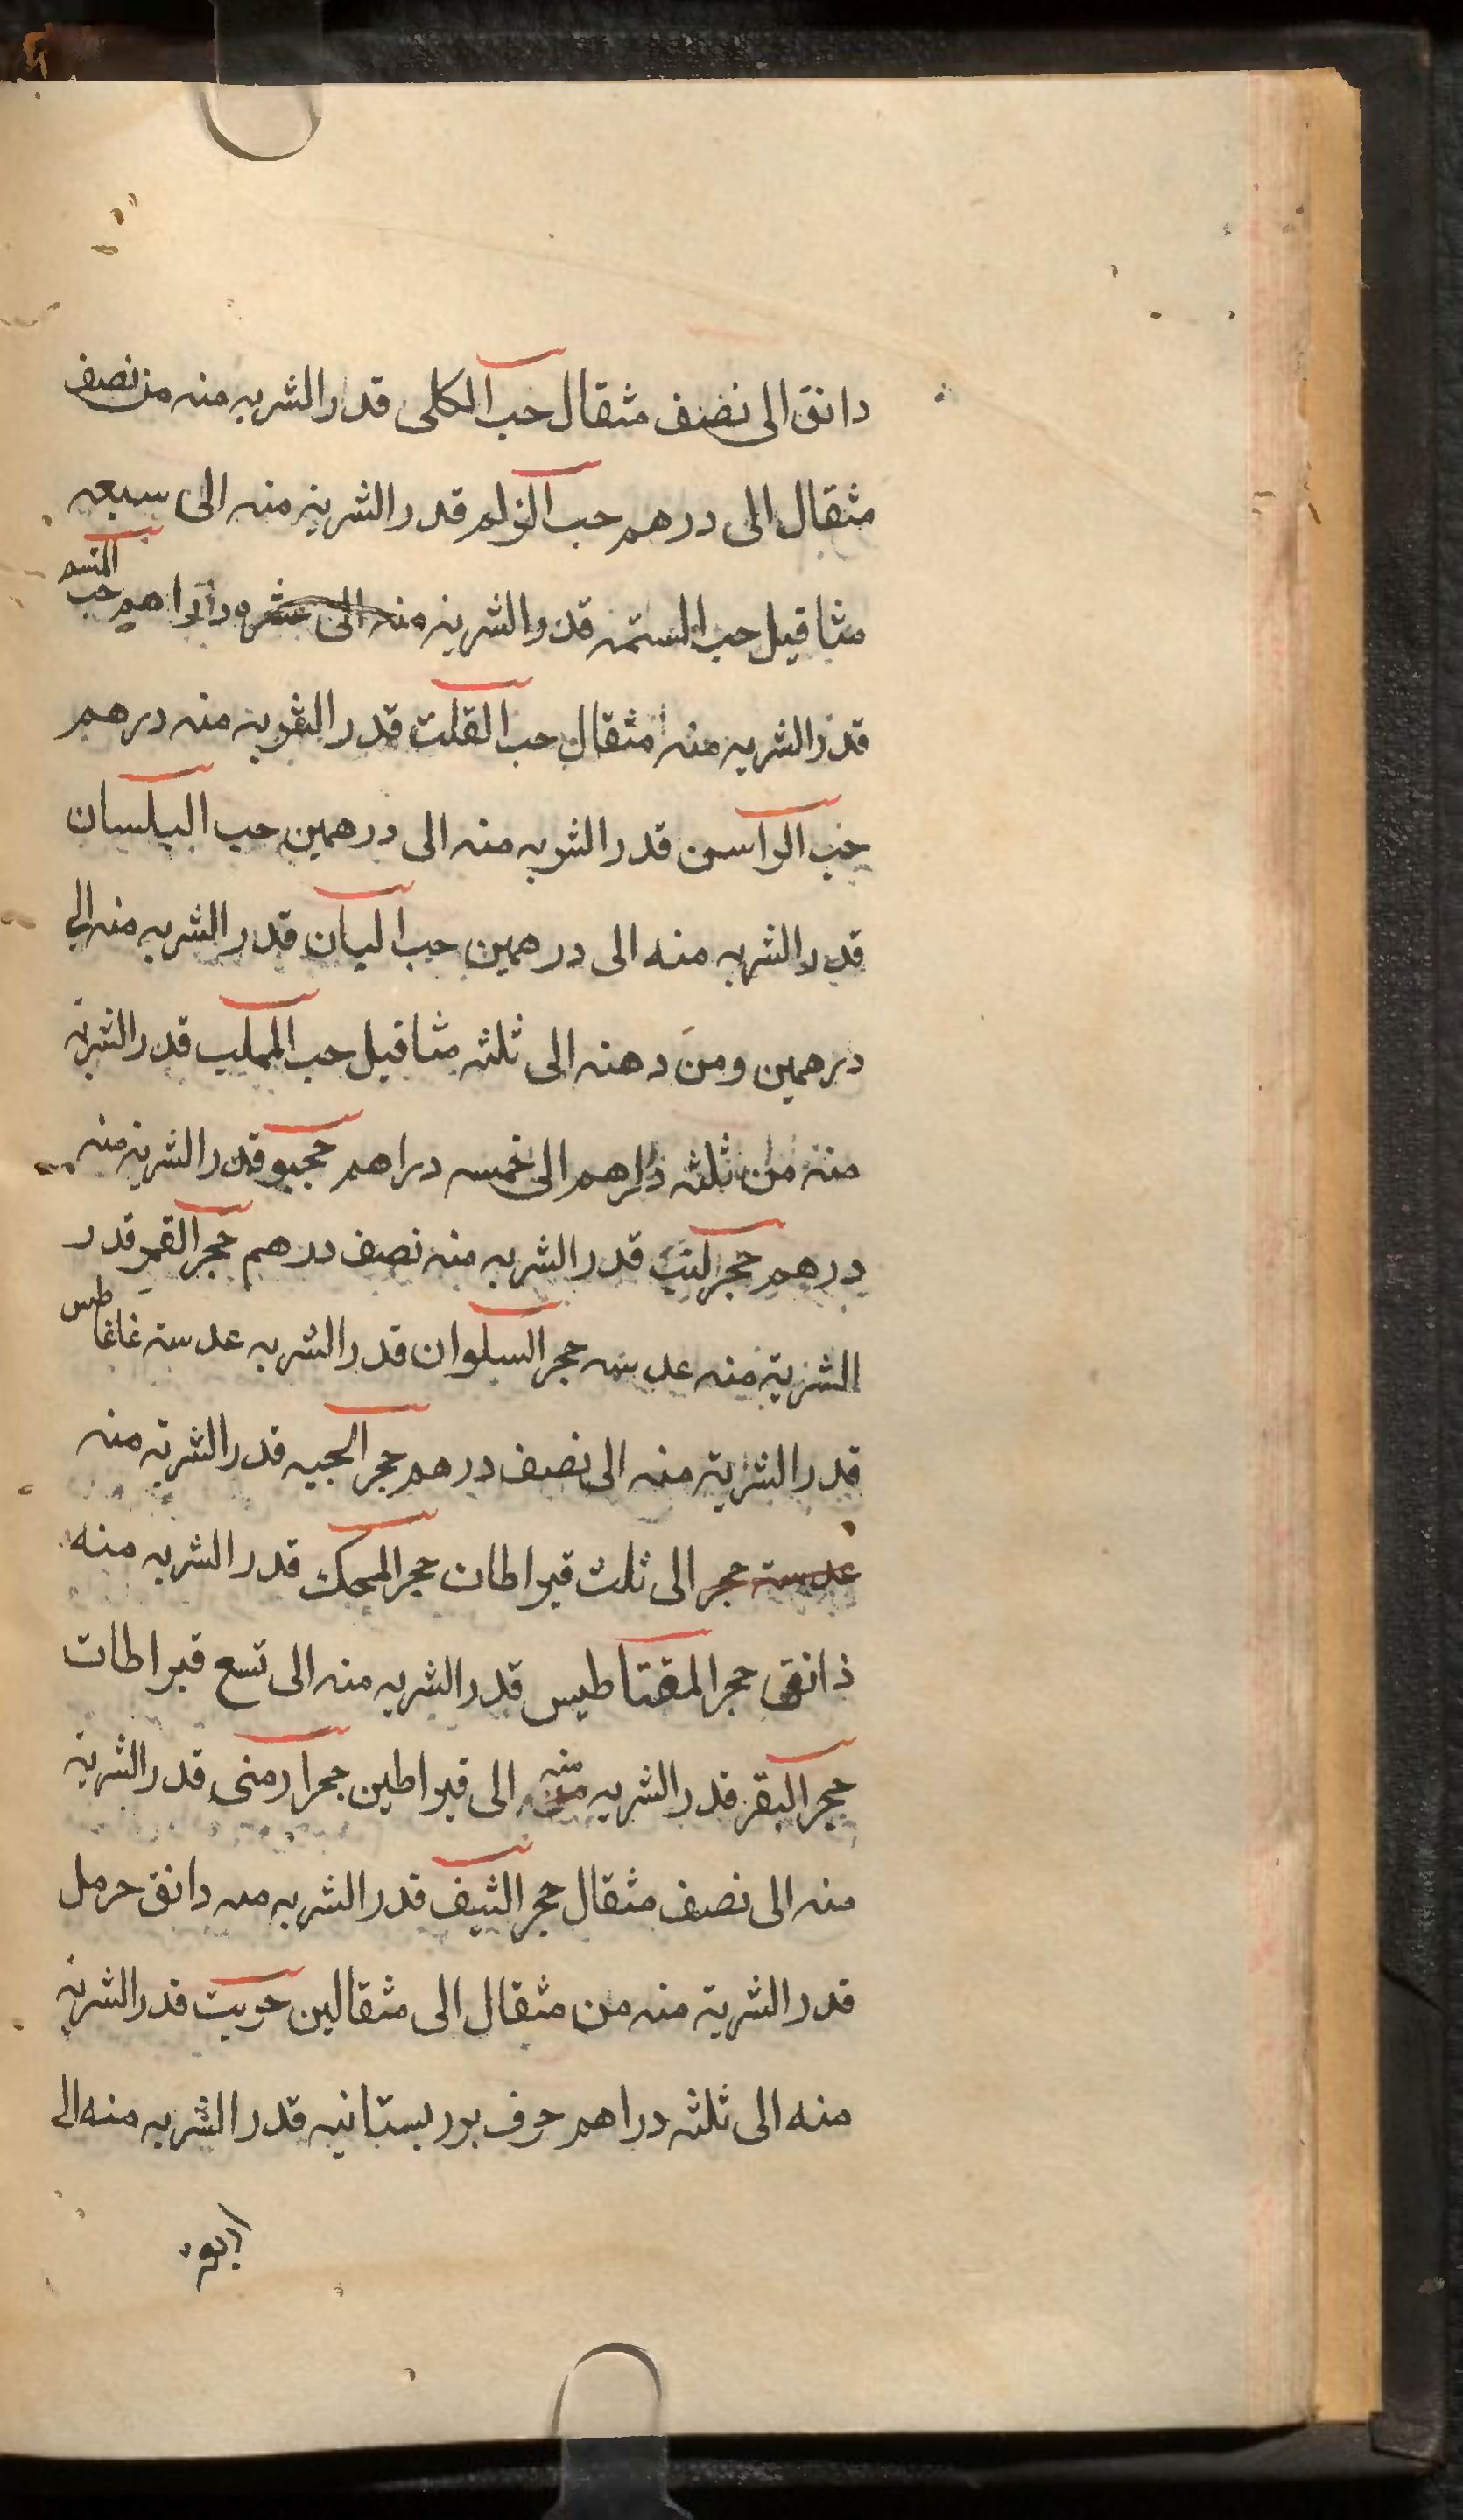 دانق الى نصف مثقال حب الكلى قدر الشربه منه من نصف
مثقال الى درهم حب الزلم قدر الشربة منه الى سبعه
مثاقيل حب السمنه قدر الشربة منه الى عشره دراهم حب المنسم
قدر الشربه منه مثقال حب القلت قدر الشربه منه درهم
حب الراسن قدر الشربه منه الى درهمين حب البلسان
قدر الشربه منه الى درهمين حب البان قدر الشربه منه الى
درهمين ومن دهنه الى ثلثه مثاقيل حب المحلب قدر الشربة
منه من ثلثه دراهم الى خمسه دراهم قدر الشربة منه
درهم حجر قدر الشربه منه نصف درهم حجر القمر قدر
الشربة منه عدسه حجر السلوان قدر الشربه عدسة غاغاطيس
قدر الشربة منه الى نصف درهم حجر الحيه قدر الشربة منه
عدسة حجر الى ثلث قيراطان حجر المحك قدر الشربه منه
ذانق حجر المقناطيس قدر الشربه منه الى تسع قيراطات
حجر البقر قدر الشربه منه الى قيراطين حجر ارمنى قدر الشربة
منه الى نصف مثقال حجر قدر الشربه منه دانق حرمل
قدر الشربة منه من مثقال الى مثقالين حربث قدر الشربة
منه الى ثلثه دراهم حرف بستانيه قدر الشربه منه الى